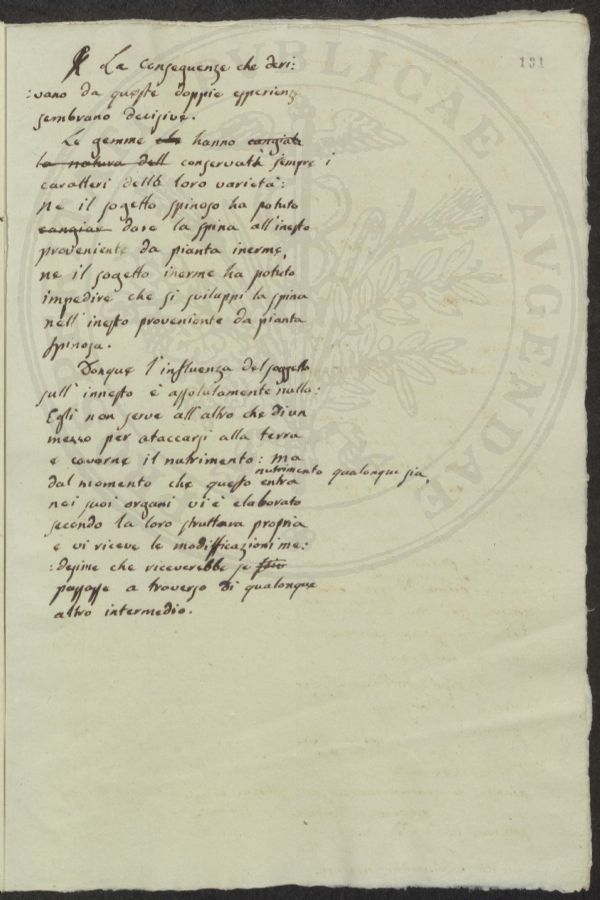 131
La Conseguenze che deri:
:vano da queste doppie esperienz
sembrano decisive.
Le gemme hanno cangiata
la natura dell conservath sempre i
caratteri della loro varietà:
Ne il sogetto spinoso ha potuto
cangiar dare la spina all'inesto
proveniente da pianta inerme,
ne il sogetto inerme ha potuto
impedire che si sviluppi la spina
nell'inesto proveniente da pianta
spinosa.
Donque l'influenza del soggetto
sull'innesto è assolutamente nulla:
Egli non serve all'altro che d'un
mezzo per ataccarsi alla terra
e cavorne il nutrimento: ma
dal momento che questo nutrimento qualonque sia, entra
nei suoi organi vi è elaborato
secondo la loro struttura propria
e vi riceve le modifficazioni me:
:desime che riceverebbe se
passasse a traverso di qualonque
altro intermedio.
PUBLICAE AUGENDAE